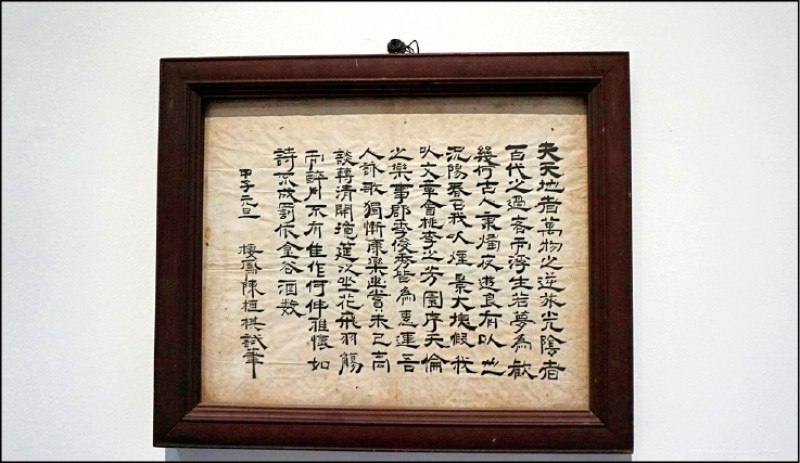 夫天地者萬物之逆旅光陰者
百代之過客而浮生若夢為歡
幾何古人秉燭夜遊良有以也
況陽春召我以煙景大塊假我
以文章會桃李之芳園序天倫
之樂事郡季俊秀皆為惠連吾
人詠歌獨慚康樂幽賞未已高
談轉清開瓊筵以坐花飛羽觴
而醉月不有佳作何伸雅懷如
詩不成罰依金谷酒數
甲子元旦 棲鳳陳桓棋試筆